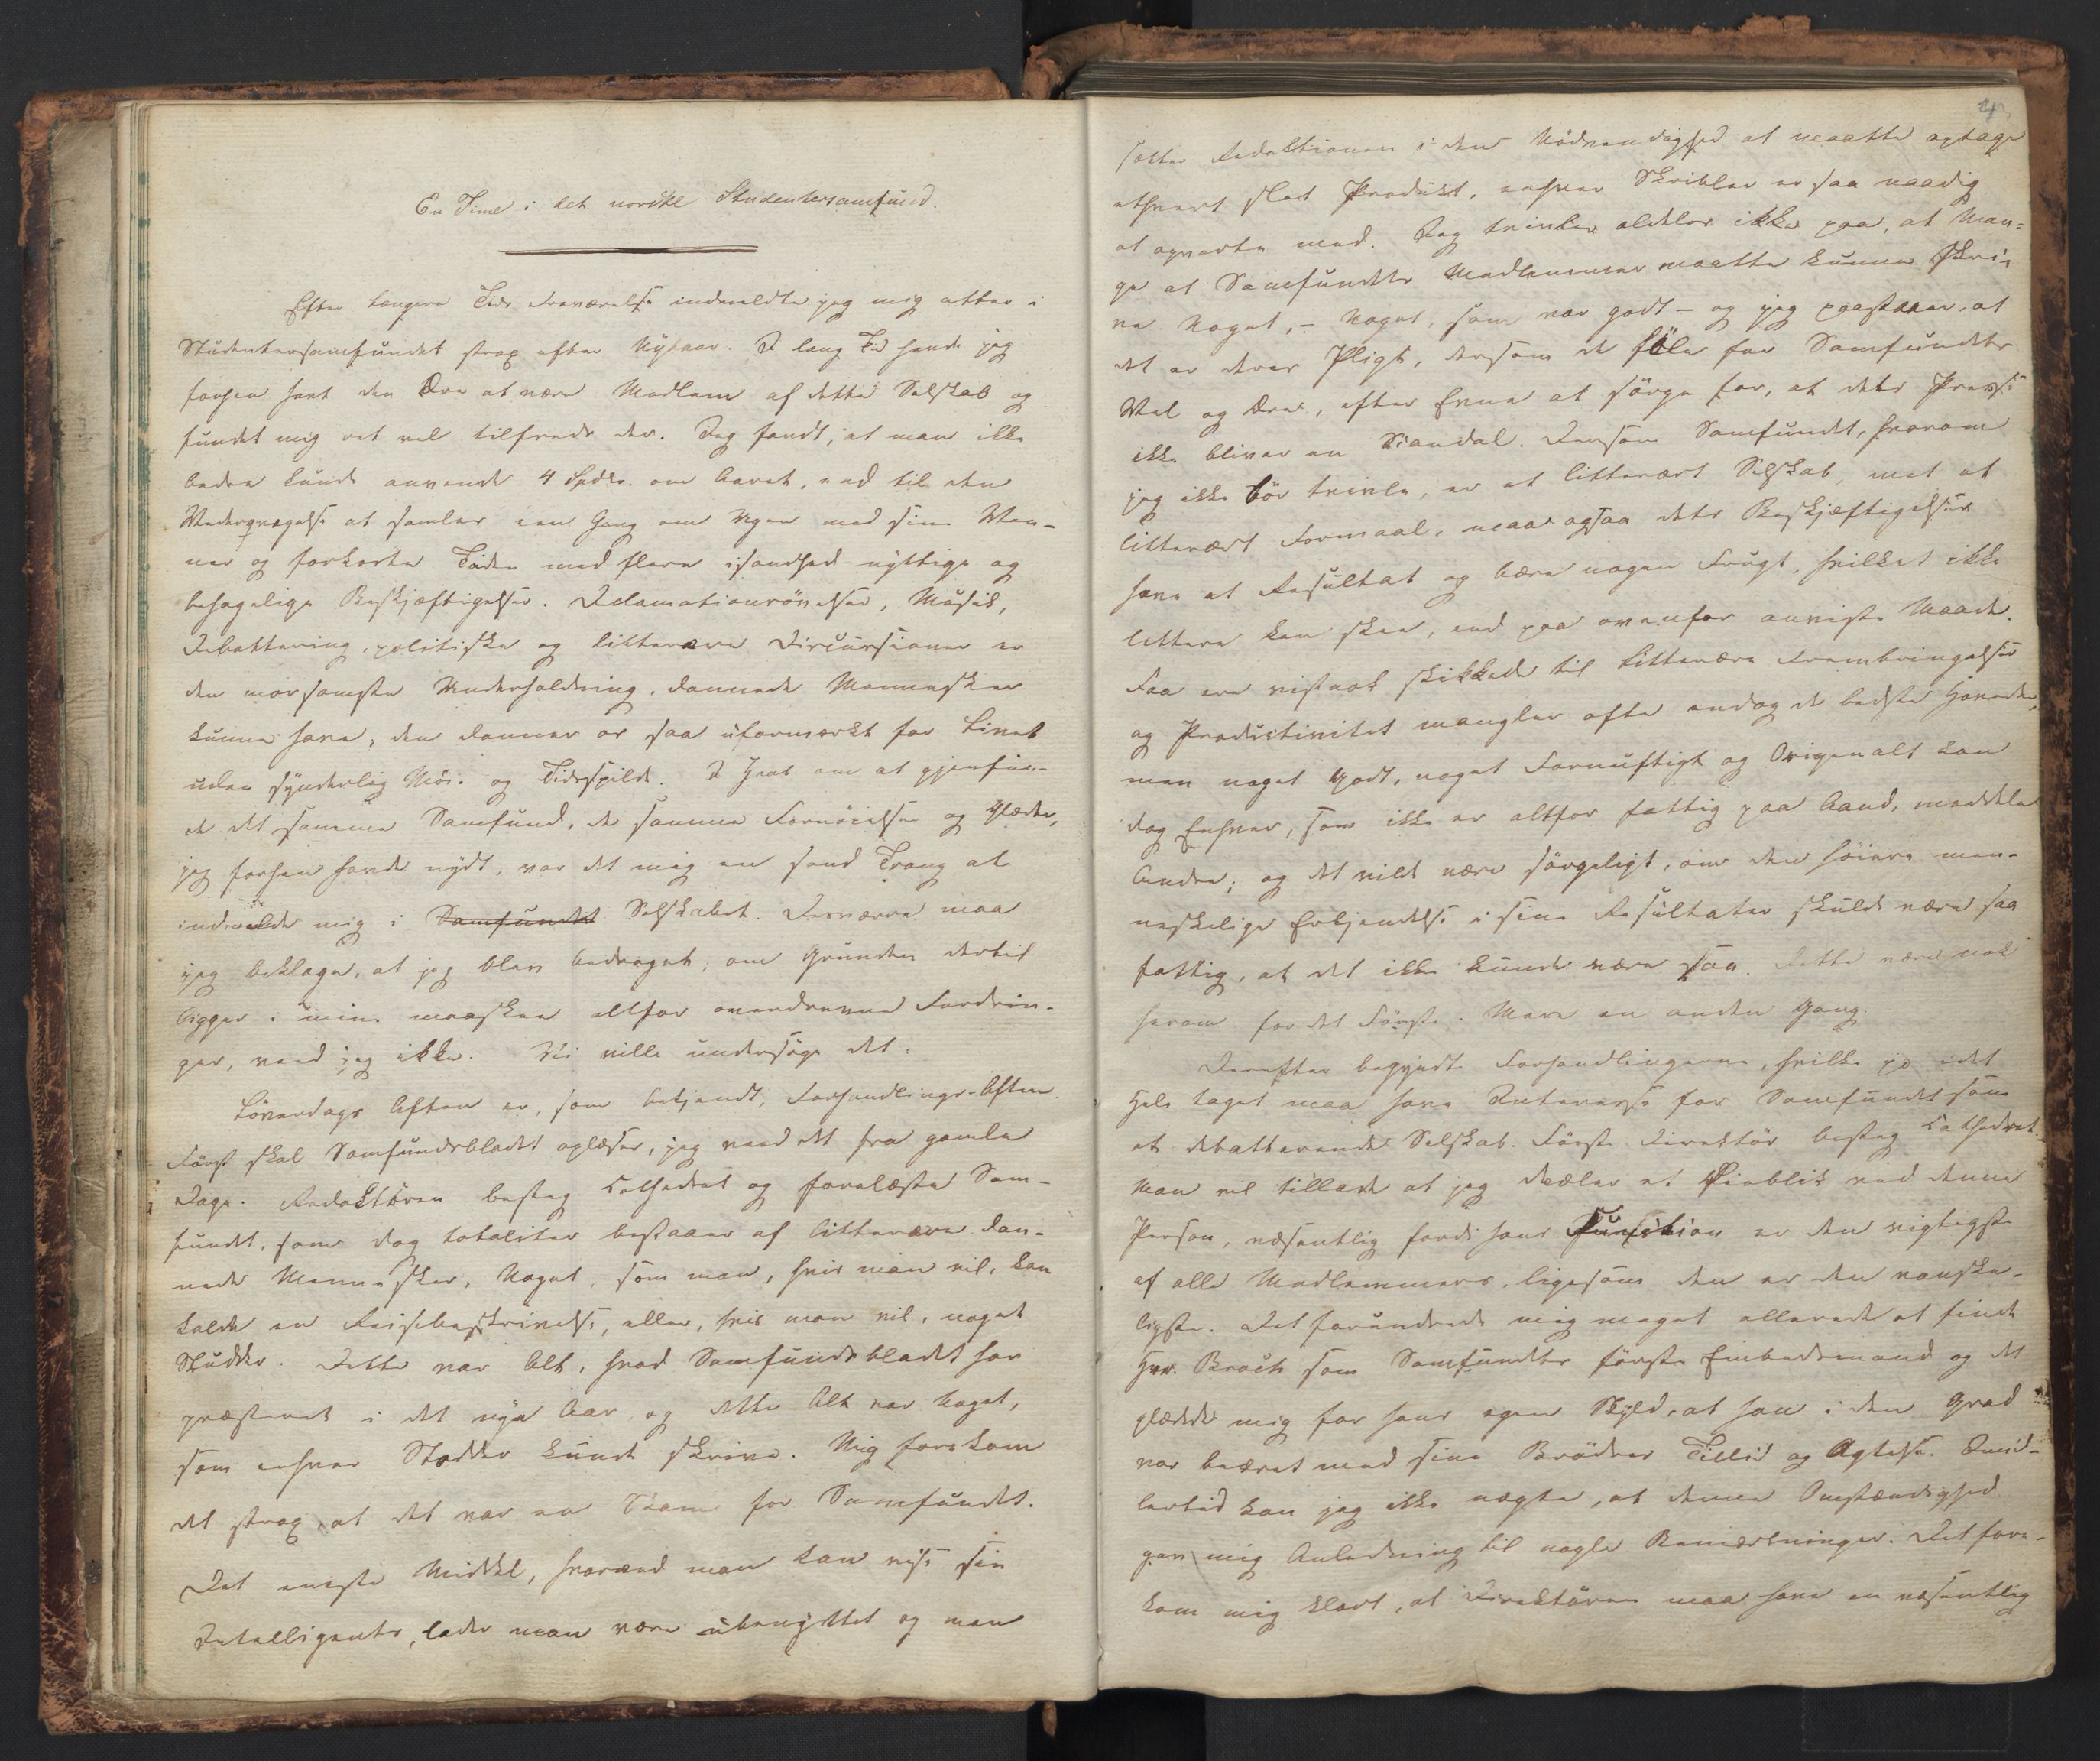 En Time i det norske Studentersamfund.
Efter længere Tids Fraværelse indmeldte jeg mig atter i
Studentersamfundet strax efter Nytaar. I lang Tid havde jeg
forhen havt den Ære at være Medlem af dette Selskab og
fundet mig ret vel tilfreds der. Jeg fandt, at man ikke
bedre kunde anvende 4 Spdlr. om Aaret, end til den
Vederqvægelse at samles een Gang om Ugen med sine Ven-
ner og forkorte Tiden med flere isandhed nyttige og
behagelige Beskjæftigelser. Declamationsövelser, Musik,
Debattering, politiske og litterære Discussioner er
den morsomste Underholdning, dannede Mennesker
kunne have, den danner os saa uformærkt for Livet
uden synderlig Möie og Tidsspilde. I Haab om at gjenfin-
de det samme Samfund, de samme Fornöielser og Glæder,
jeg forhen havde nydt, var det mig en sand Trang at
indmelde mig i Samfundet Selskabet. Desværre maa
jeg beklage, at jeg blev bedraget; om Grunden dertil
ligger i mine maaskee altfor overdrevne Fordrin-
ger, veed jeg ikke. Vi ville undersöge det.
Löverdags Aften er, som bekjendt, Forhandlings-Aften.
Först skal Samfundsbladet oplæses, jeg veed det fra gamle
Dage. Redaktören besteg Cathedret og forelæste Sam-
fundet, som dog totaliter bestaaer af litterære dan-
nede Mennesker, Noget, som man, hvis man vil, kan
kalde en Reisebeskrivelse, eller, hvis man vil, noget
Studder. Dette var Alt, hvad Samfundsbladet har
præsteret i det nye Aar og dette Alt var Noget,
som enhver Stodder kunde skrive. Mig forekom
det strax, at det var en Skam for Samfundet.
Det eneste Middel, hvorved man kan vise sin
Intelligents, lader man være ubenyttet og man
sætter Redaktionen i den Nödvendighed at maatte optage
ethvert slet Produkt, enhver Skribler er saa naadig
at opvarte med. Jeg tvivler aldeles ikke paa, at Man-
ge af Samfundets Medlemmer maatte kunne skri-
ve Noget, – Noget, som var godt – og jeg paastaaer, at
det er deres Pligt, dersom de föle for Samfundets
Vel og Ære, efter Evne at sörge for, at dets Presse
ikke bliver en Skandal. Dersom Samfundet, hvorom
jeg ikke bör tvivle, er et litterært Selskab, med et
litterært Formaal, maa ogsaa dets Beskjæftigelser
have et Resultat og bære nogen Frugt, hvilket ikke
lettere kan skee, end paa ovenfor anviste Maade.
Faa ere vistnok skikkede til litterære Frembringelser
og Productivitet mangler ofte endog de bedste Hoveder,
men noget Godt, noget Fornuftigt og Origenalt kan
dog Enhver, som ikke er altfor fattig paa Aand, meddele
Andre; og det vilde være sörgeligt, om den höiere men-
neskelige Erkjendelse i sine Resultater skulde være saa
fattig, at det ikke kunde være saa. Dette være nok
herom for det Förste. Mere en anden Gang.
Derefter begyndte Forhandlingerne, hvilke jo i det
Hele taget maa have Interesse for Samfundet som
et debatterende Selskab. Förste Direktör besteg Cathedret.
Man vil tillade at jeg dvæler et Öieblik ved denne
Person, væsentlig fordi hans Funktion er den vigtigste
af alle Medlemmers, ligesom den er den vanske-
ligste. Det forundrede mig meget allerede at finde
Hrr. Broch som Samfundets förste Embedsmand og det
glædede mig for hans egen Skyld, at han i den Grad
var beæret med sine Brödres Tillid og Agtelse. Imid-
lertid kan jeg ikke nægte, at denne Omstændighed
gav mig Anledning til nogle Bemærkninger. Det fore-
kom mig klart, at Direktören maa have en væsentlig